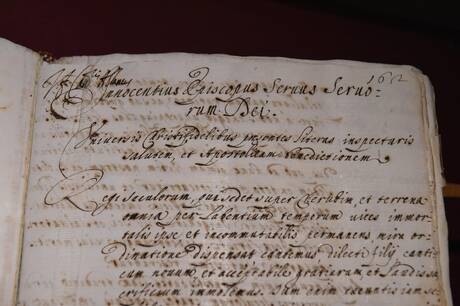 162
Innocentius Episcopus Seruus Seruo-
rum Dei.
Vniversis Christifidelibus presentes literas inspecturis
salutem, et Apostolicam benedictionem
Rex seculorum, qui sedet super cherubim, et terrena
omnia per labentium temperum vices immor-
talis ipse et incommutibilis permanens mira or-
dinatione dispensat cantemus dilecti filij canti-
cum nouum, et acceptabile gratiarum, et laudis sa-
crificium immolemus. Iam enim